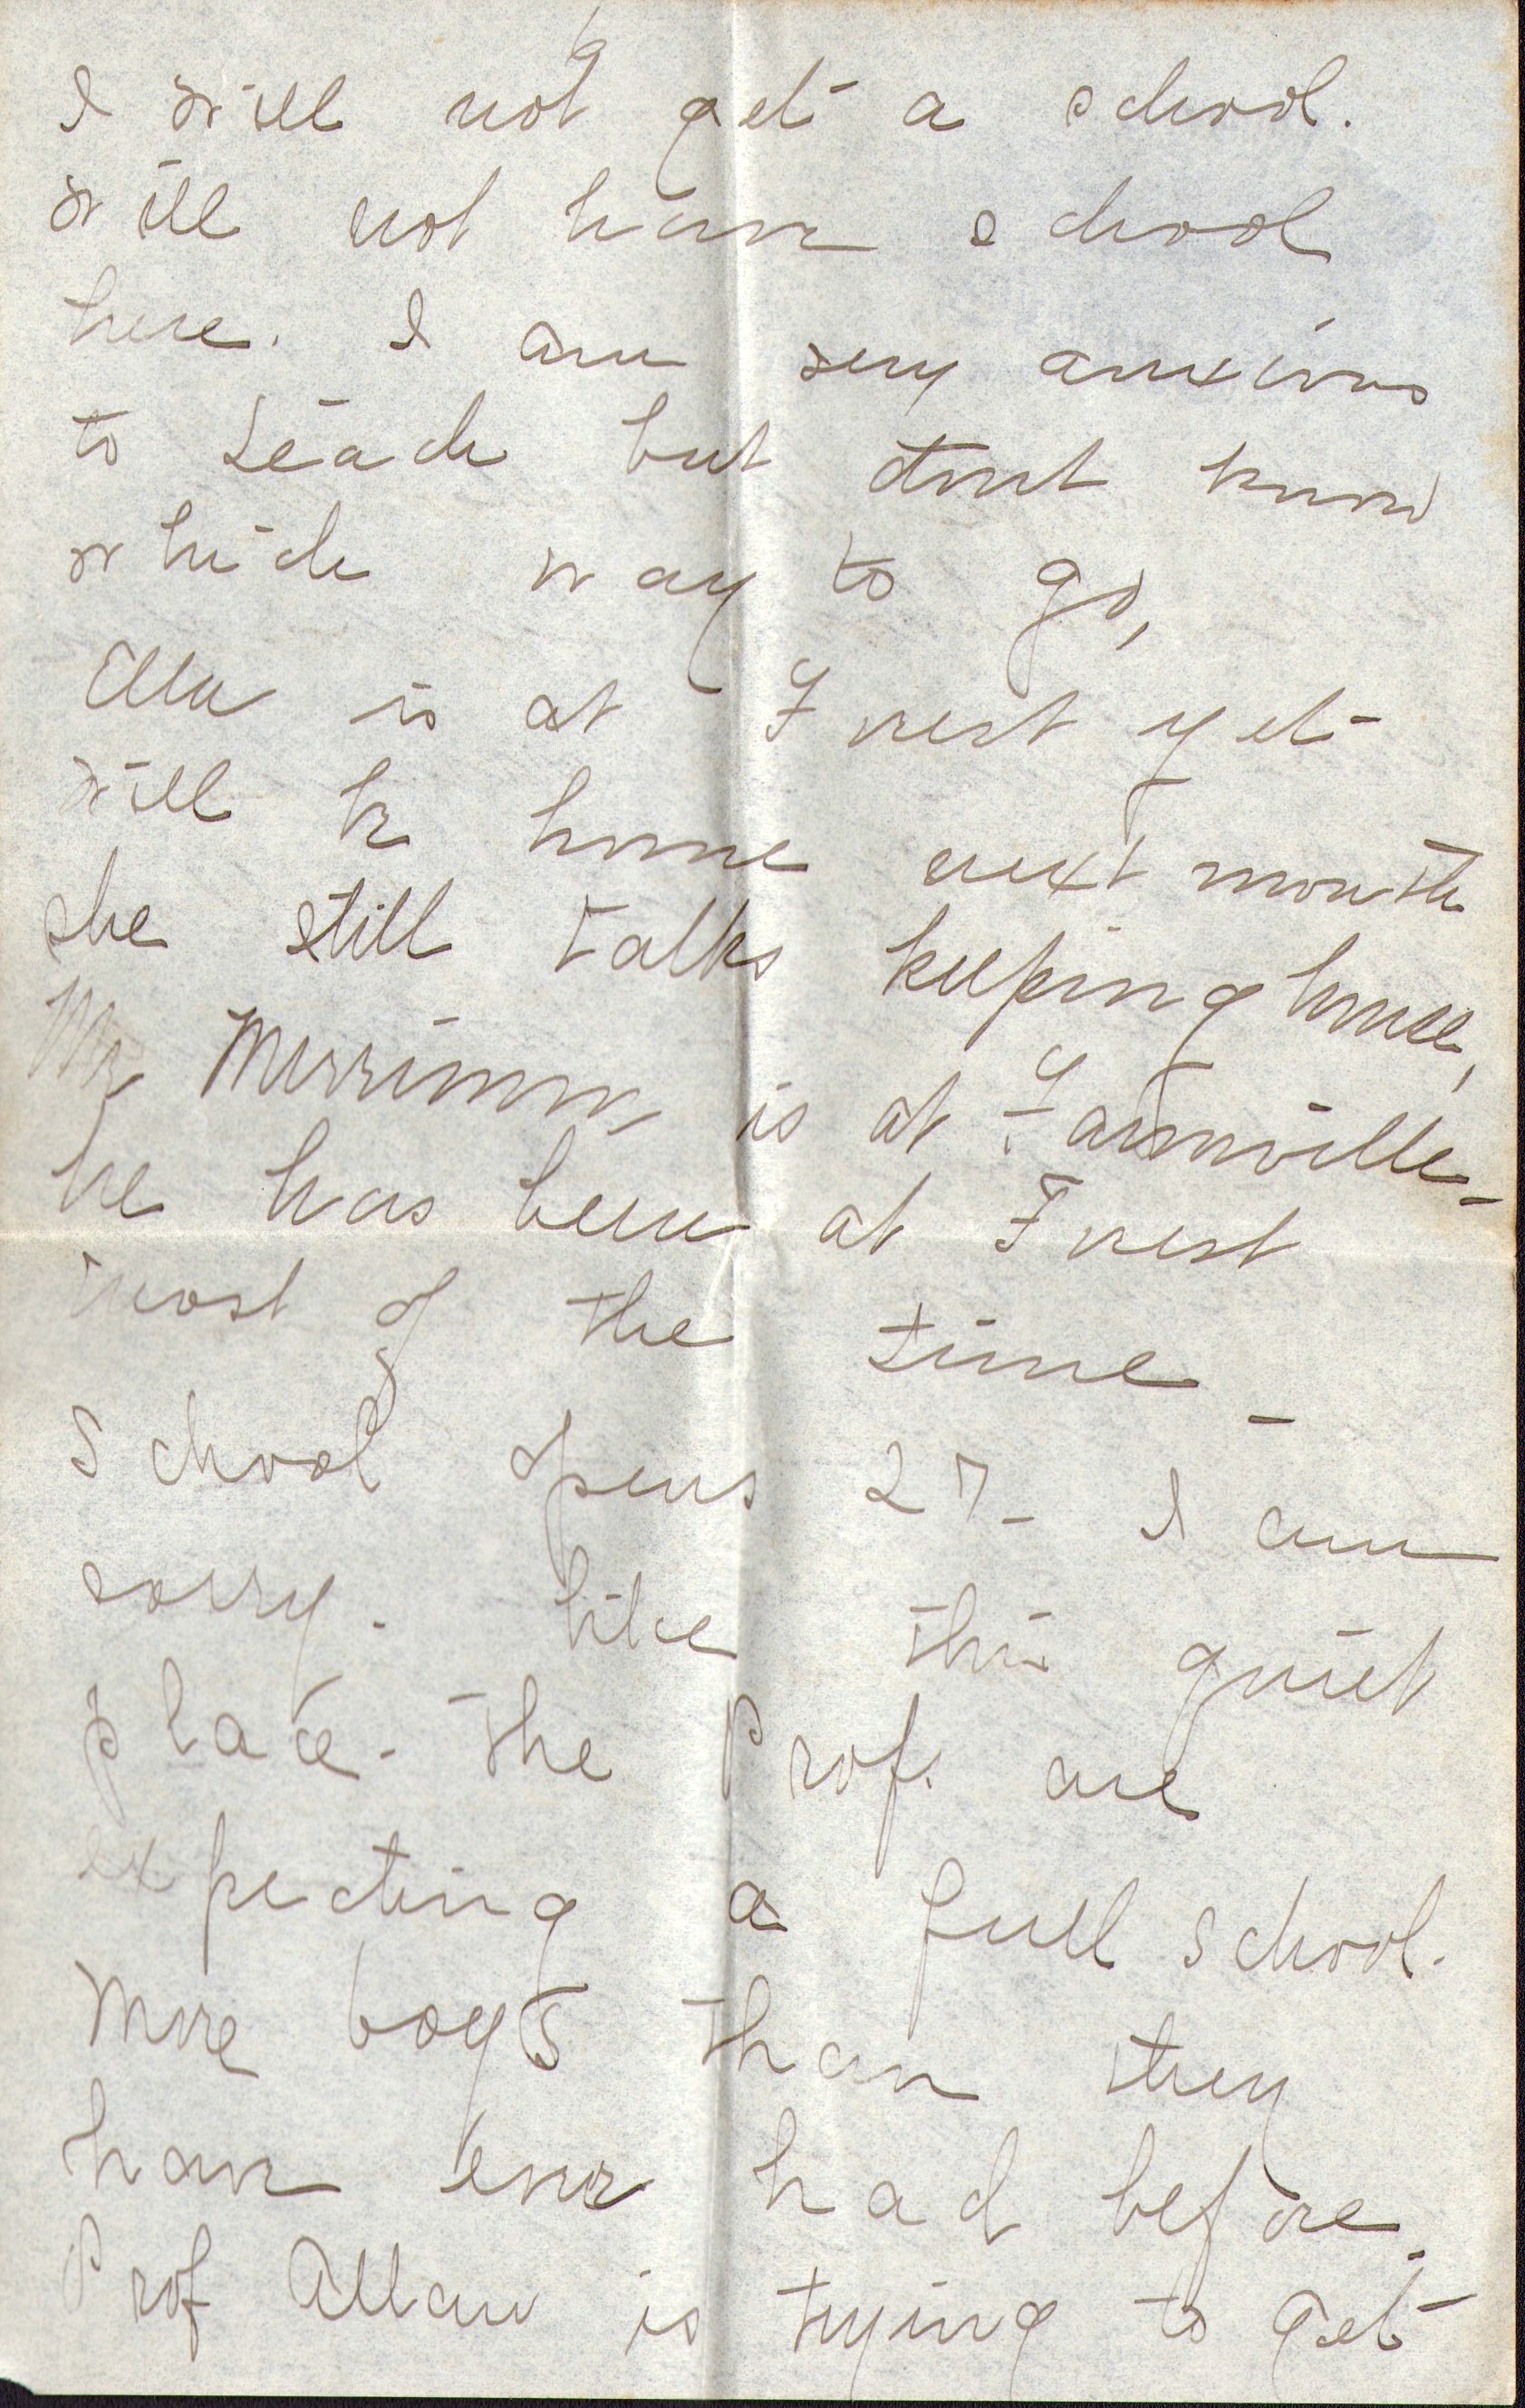 6
I will not get a school.
will not have school
here. I am very anxious
to teach but dont know
which way to go,
Ella is at Forest yet-
will be home next month
she still talks keeping house,
Mr Merrimon is at Farmville-
he has been at Forest
most of the time-
School opens 27- I am
sorry. like this quiet
place- the Prof. are
expecting a full school.
more boys than they
have ever had before.
Prof Allan is trying to get